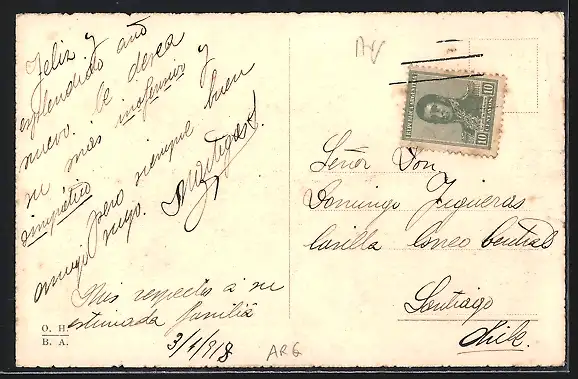 Feliz y
esplendido año
nuevo. Le desea
su mas inofensivo y
simpático
amigo pero siempre buen
suyo.
Mis respectos á su
estimada familia
3/1/918
O. H.
B. A.
ARG
REPUBLICA ARGENTINA
10 10
CENTAVOS
Señor Don
Domingo Figueras
Casilla Correo Central
Santiago
Chile.